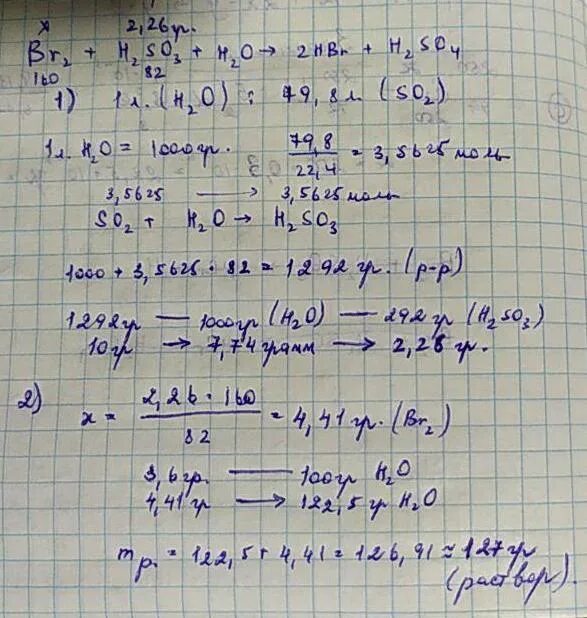 x 2,26гр.
Br₂ + H₂SO₃ + H₂O → 2HBr + H₂SO₄
160 82
1) 1л. (H₂O) : 79,8л. (SO₂)
1л. H₂O = 1000гр. 79,8/22,4 = 3,5625 моль
3,5625 → 3,5625 моль
SO₂ + H₂O → H₂SO₃
1000 + 3,5625 · 82 = 1292 гр. (р-р)
1292гр — 1000гр (H₂O) — 292 гр (H₂SO₃)
10гр → 7,74 грамм → 2,26 гр.
2) x = 2,26 · 160/82 = 4,41 гр. (Br₂)
3,6гр. — 100гр H₂O
4,41гр → 122,5гр H₂O
mр. = 122,5 + 4,41 = 126,91 ≈ 127гр
(раствор).